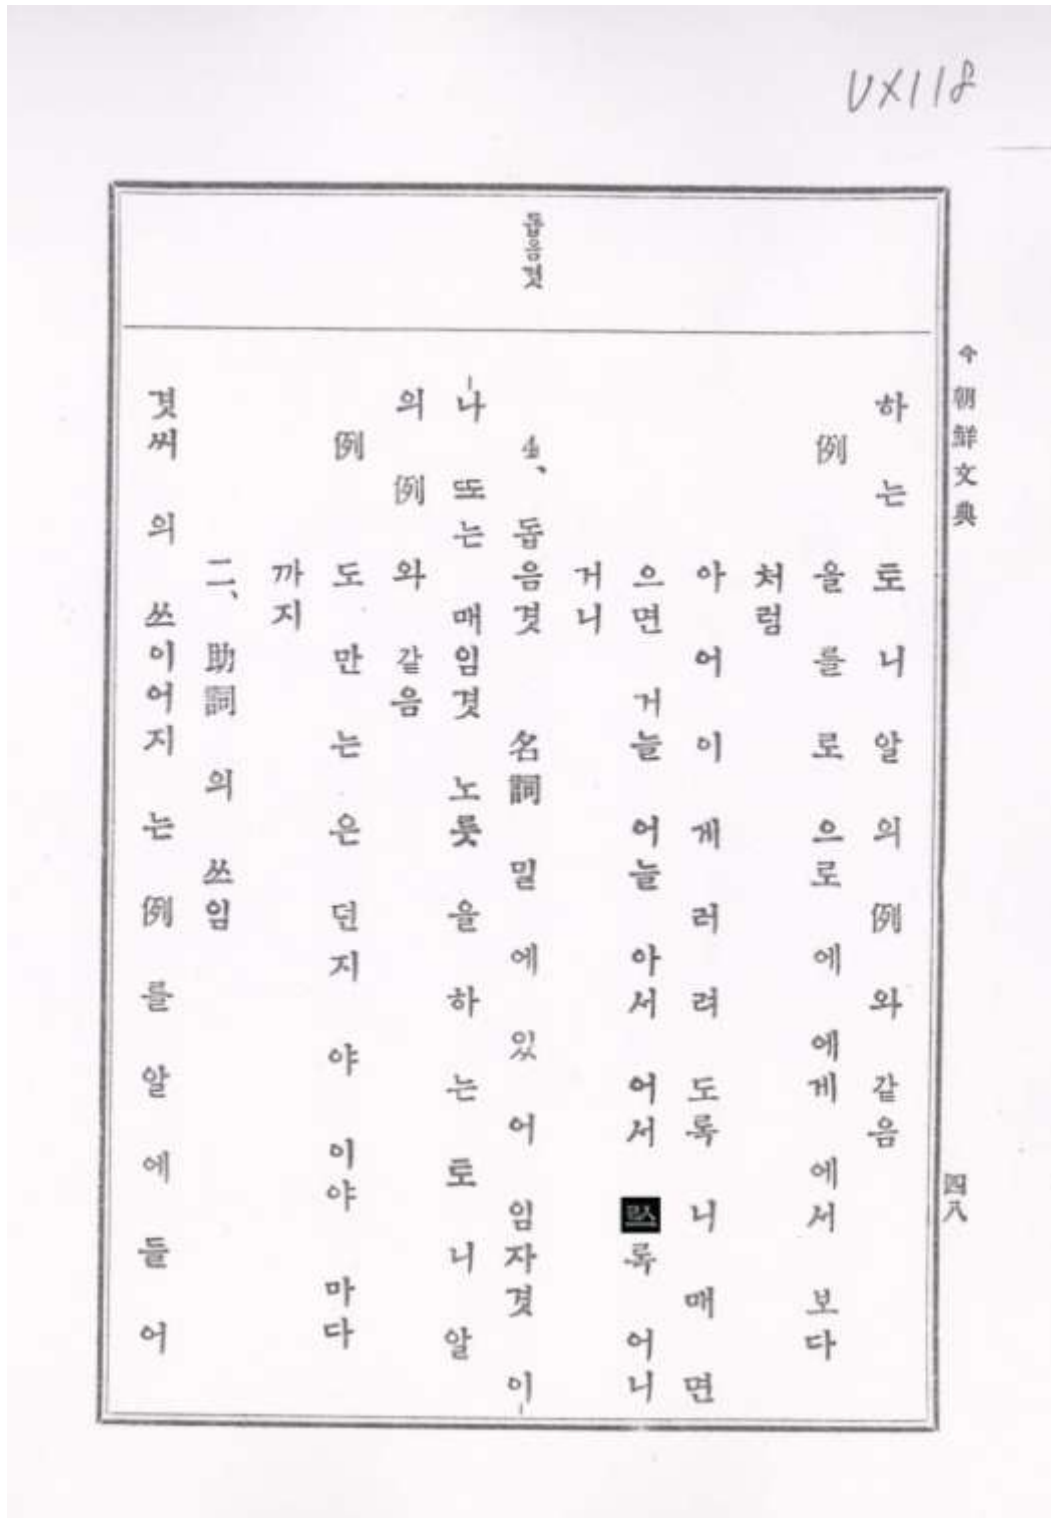 UX118
今 朝鮮文典
四八
돕음겻
하는 토니 알의 例와 같음
例 을 를 로 으로 에 에게 에서 보다
처럼
아 어 이 게 러 려 도록 니 매 면
으면 거늘 어늘 아서 어서 록 어니
거니
4、돕음겻 名詞 밑에 있어 임자겻 이
나 또는 매임겻 노릇을 하는 토니 알
의 例와 같음
例 도 만 는 은 던지 야 이야 마다
까지
二、助詞의 쓰임
겻씨의 쓰이어지는 例를 알에 들어